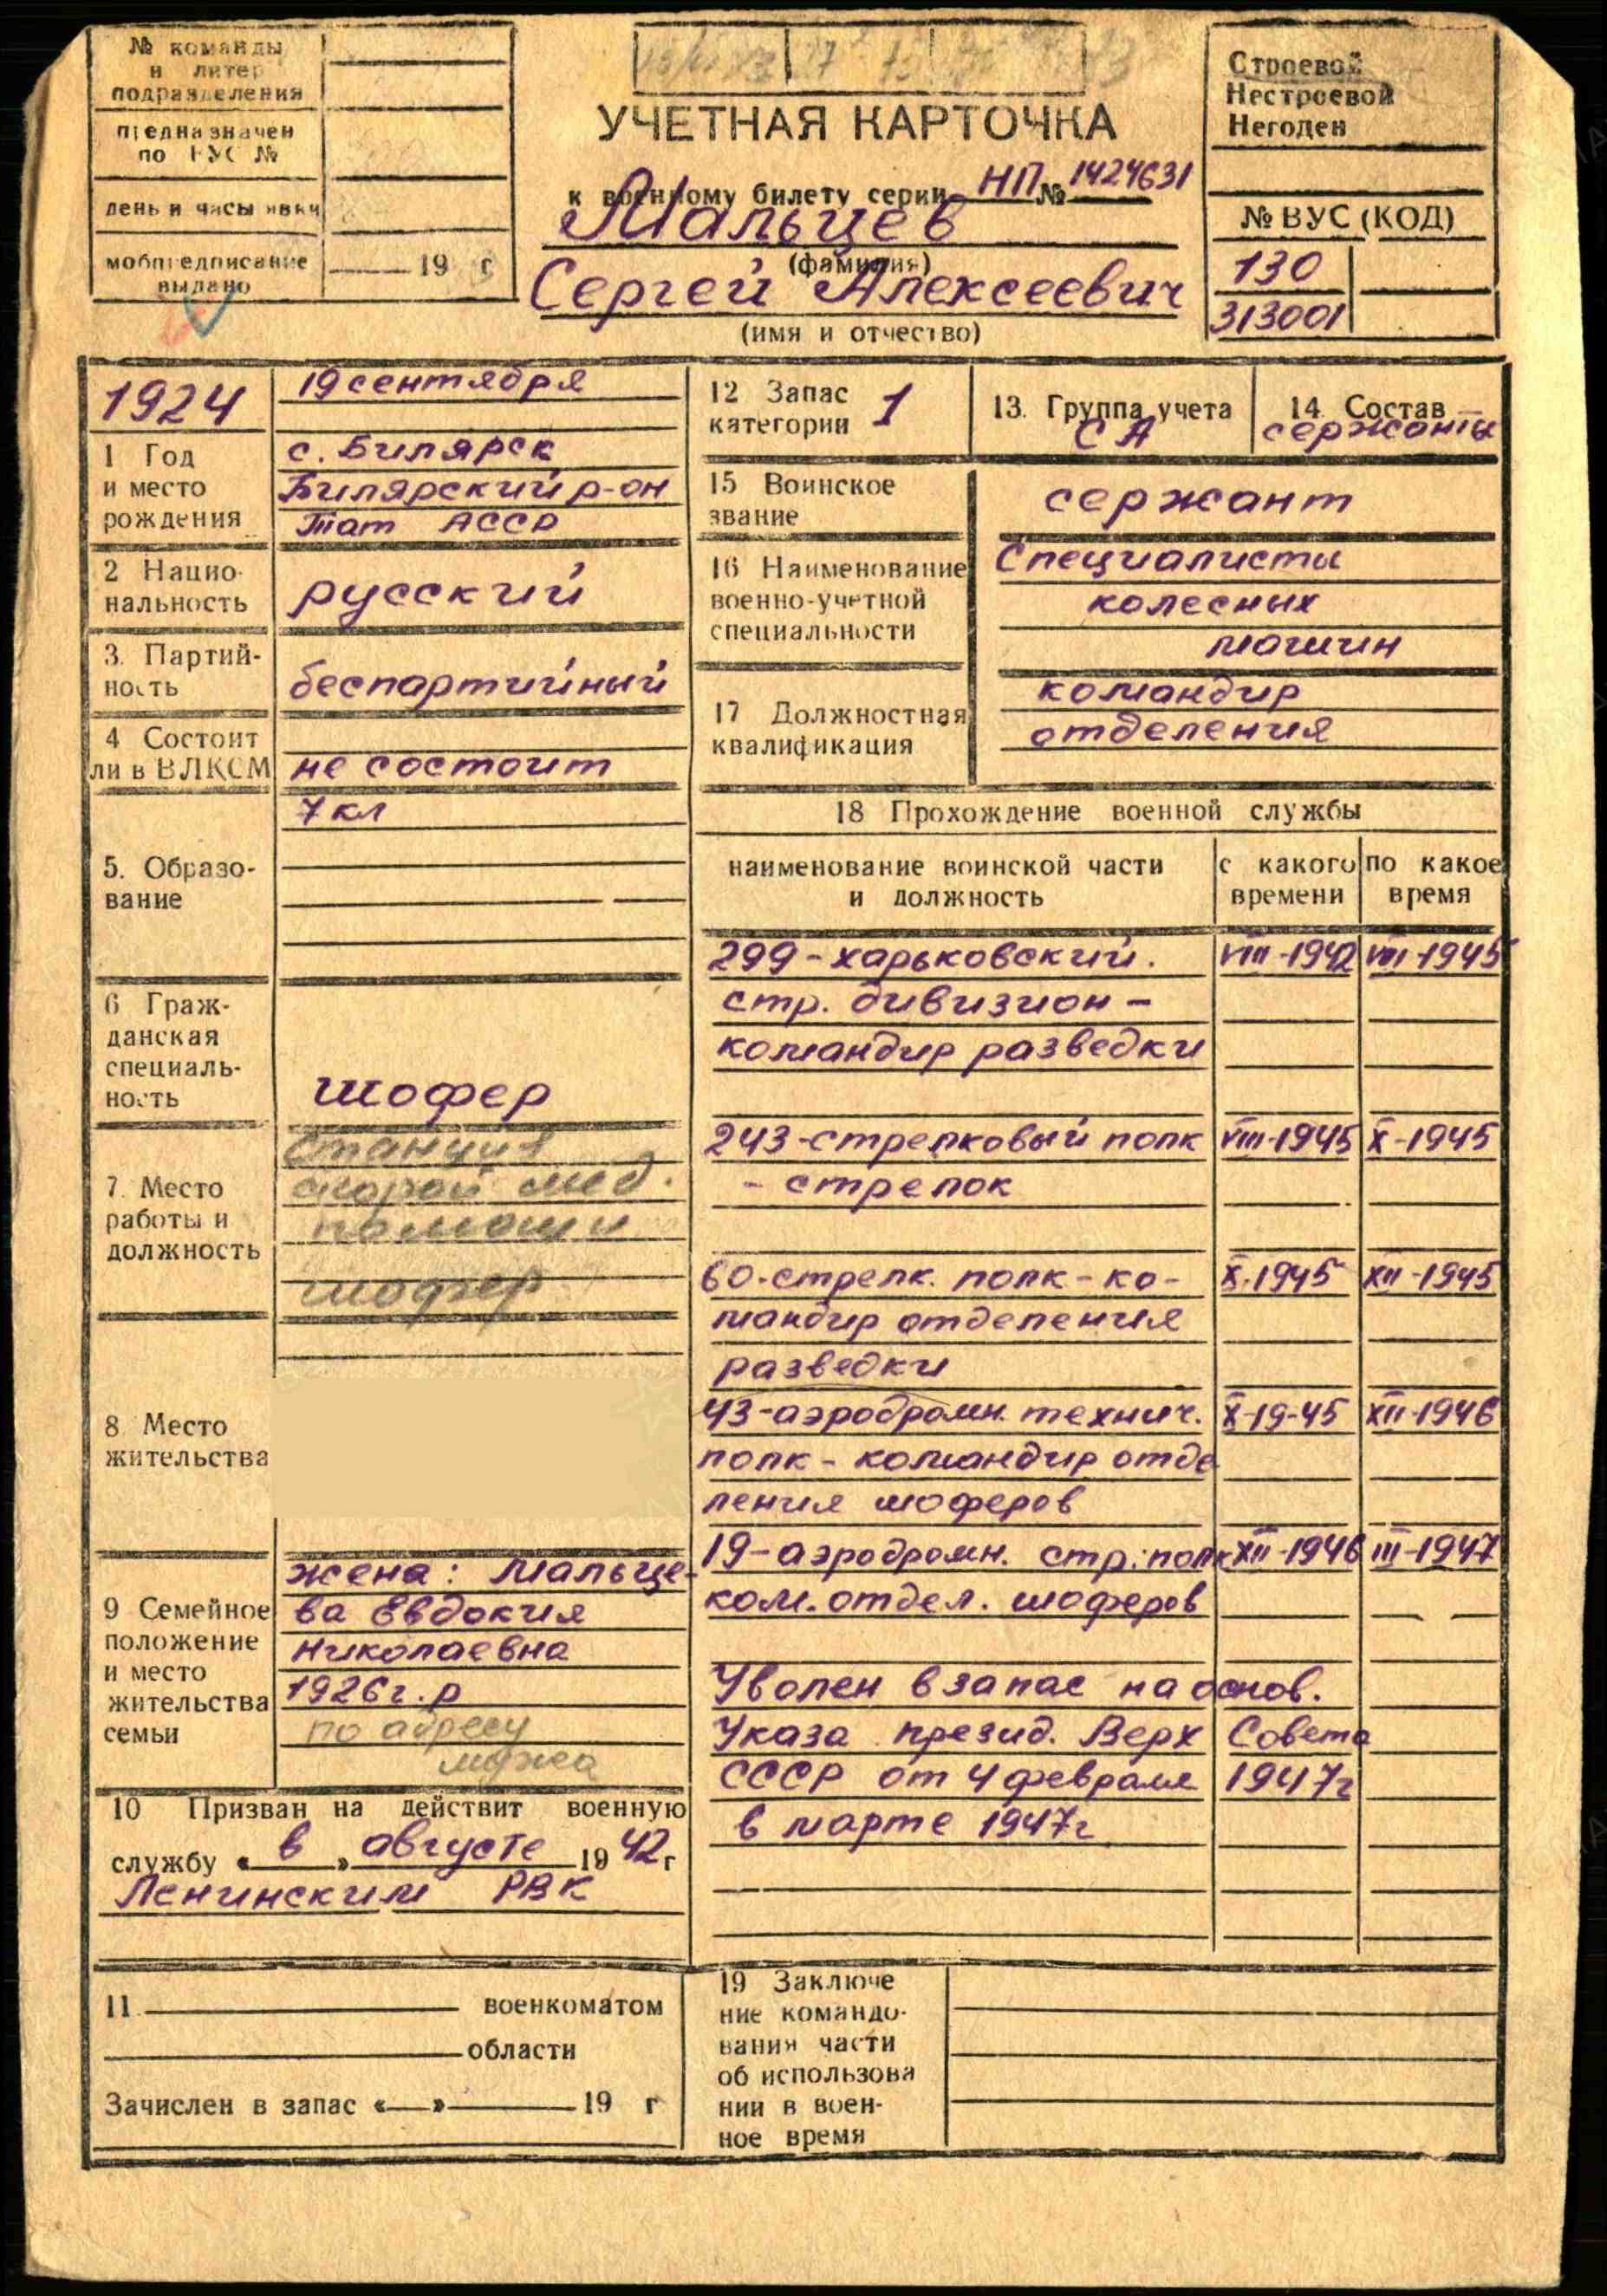 № команды
и литер
подразделения
предназначен
по ВУС №
день и часы явки
мобпредписание
выдано
19 г
УЧЕТНАЯ КАРТОЧКА
к военному билету серии НП № 1424631
Мальцев
(фамилия)
Сергей Алексеевич
(имя и отчество)
Строевой
Нестроевой
Негоден
№ ВУС (КОД)
130
313001
1924
19 сентября
1 Год
и место
рождения
с. Билярск
Билярский р-он
Тат АССР
2 Нацио-
нальность
русский
3. Партий-
ность
беспартийный
4 Состоит
ли в ВЛКСМ
не состоит
5. Образо-
вание
7 кл
6 Граж-
данская
специаль-
ность
шофер
7. Место
работы и
должность
Станция
скорой мед.
помощи
шофер
8 Место
жительства
9 Семейное
положение
и место
жительства
семьи
жена: Мальце-
ва Евдокия
Николаевна
1926 г.р
по адресу
мужа
10 Призван на действит военную
службу « в » августе 19 42 г
Ленинским РВК
11. военкоматом
области
Зачислен в запас « » 19 г
12 Запас
категории 1
13. Группа учета
СА
14. Состав
сержанты
15 Воинское
звание
сержант
16 Наименование
военно-учетной
специальности
Специалисты
колесных
машин
17 Должностная
квалификация
командир
отделения
18 Прохождение военной службы
наименование воинской части
и должность
с какого
времени
по какое
время
299-харьковский. VIII-1942 VIII-1945
стр. дивизион -
командир разведки
243-стрелковый полк VIII-1945 X-1945
- стрелок
60-стрелк. полк - ко- X-1945 XII-1945
мандир отделения
разведки
43-аэродромн. технич. X-19-45 XII-1946
полк - командир отде
ления шоферов
19-аэродромн. стр. полк XII-1946 III-1947
ком. отдел. шоферов
Уволен в запас на основ.
Указа презид. Верх Совета
СССР от 4 февраля 1947г
в марте 1947г
19 Заключе
ние командо-
вания части
об использова
нии в воен-
ное время